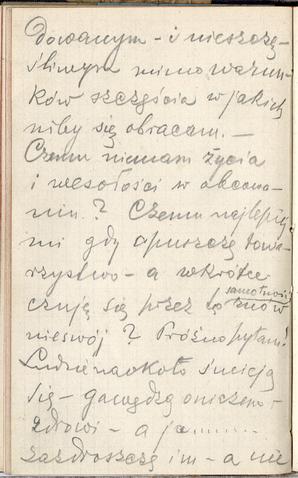 dowanym - i nieszczę-
śliwym mimo warun-
ków szczęścia w jakich
niby się obracam. -
Czemu niemam życia
i wesołości w obcowa-
niu? Czemu najlepiej
mi gdy opuszczę towa-
rzystwo - a wkrótce
samotność
czuję się przez to znów
nieswój? Próżno pytam!
Ludzie naokoło śmieją
się - gawędzą o niczem -
zdrowi - a ja.......
zazdroszczę im - a nie